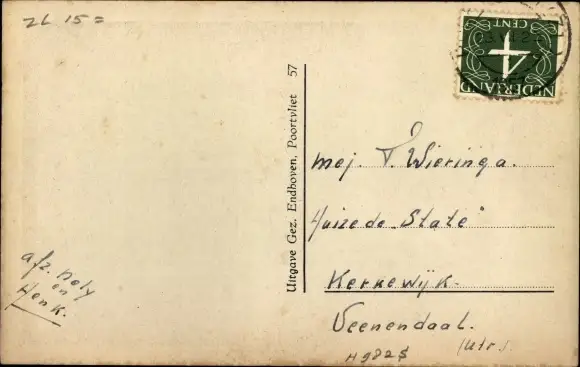 ZL 15=
NEDERLAND
4
CENT
Uitgave Gez. Endhoven, Poortvliet 57
mej. T. Wieringa.
Huize de "State"
Kerkewijk.
Veenendaal.
(Utr.)
afz. Nely
en
Henk.
H9825